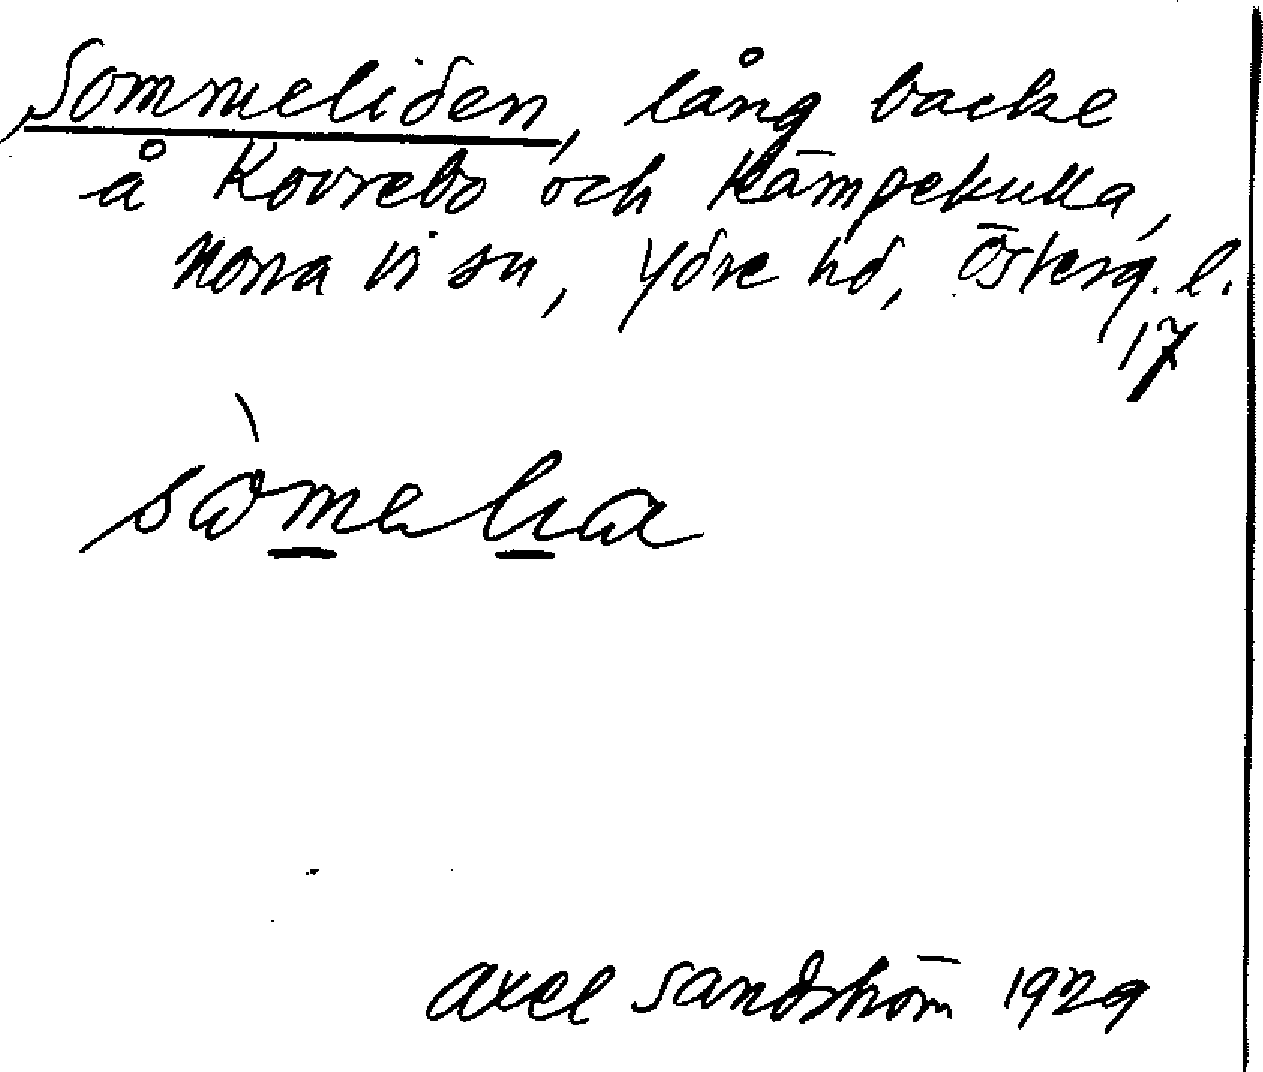 Sommeliden, lång backe
å Kovrebo och Kämpekulla,
Norra Vi sn, Ydre hd, Österg. l.
17
Axel Sandström 1929